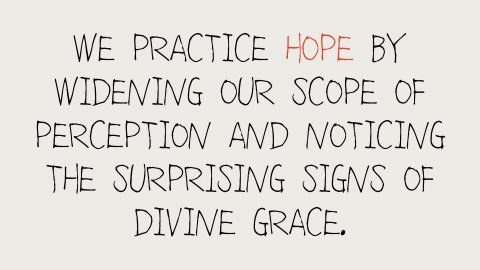 WE PRACTICE HOPE BY
WIDENING OUR SCOPE OF
PERCEPTION AND NOTICING
THE SURPRISING SIGNS OF
DIVINE GRACE.